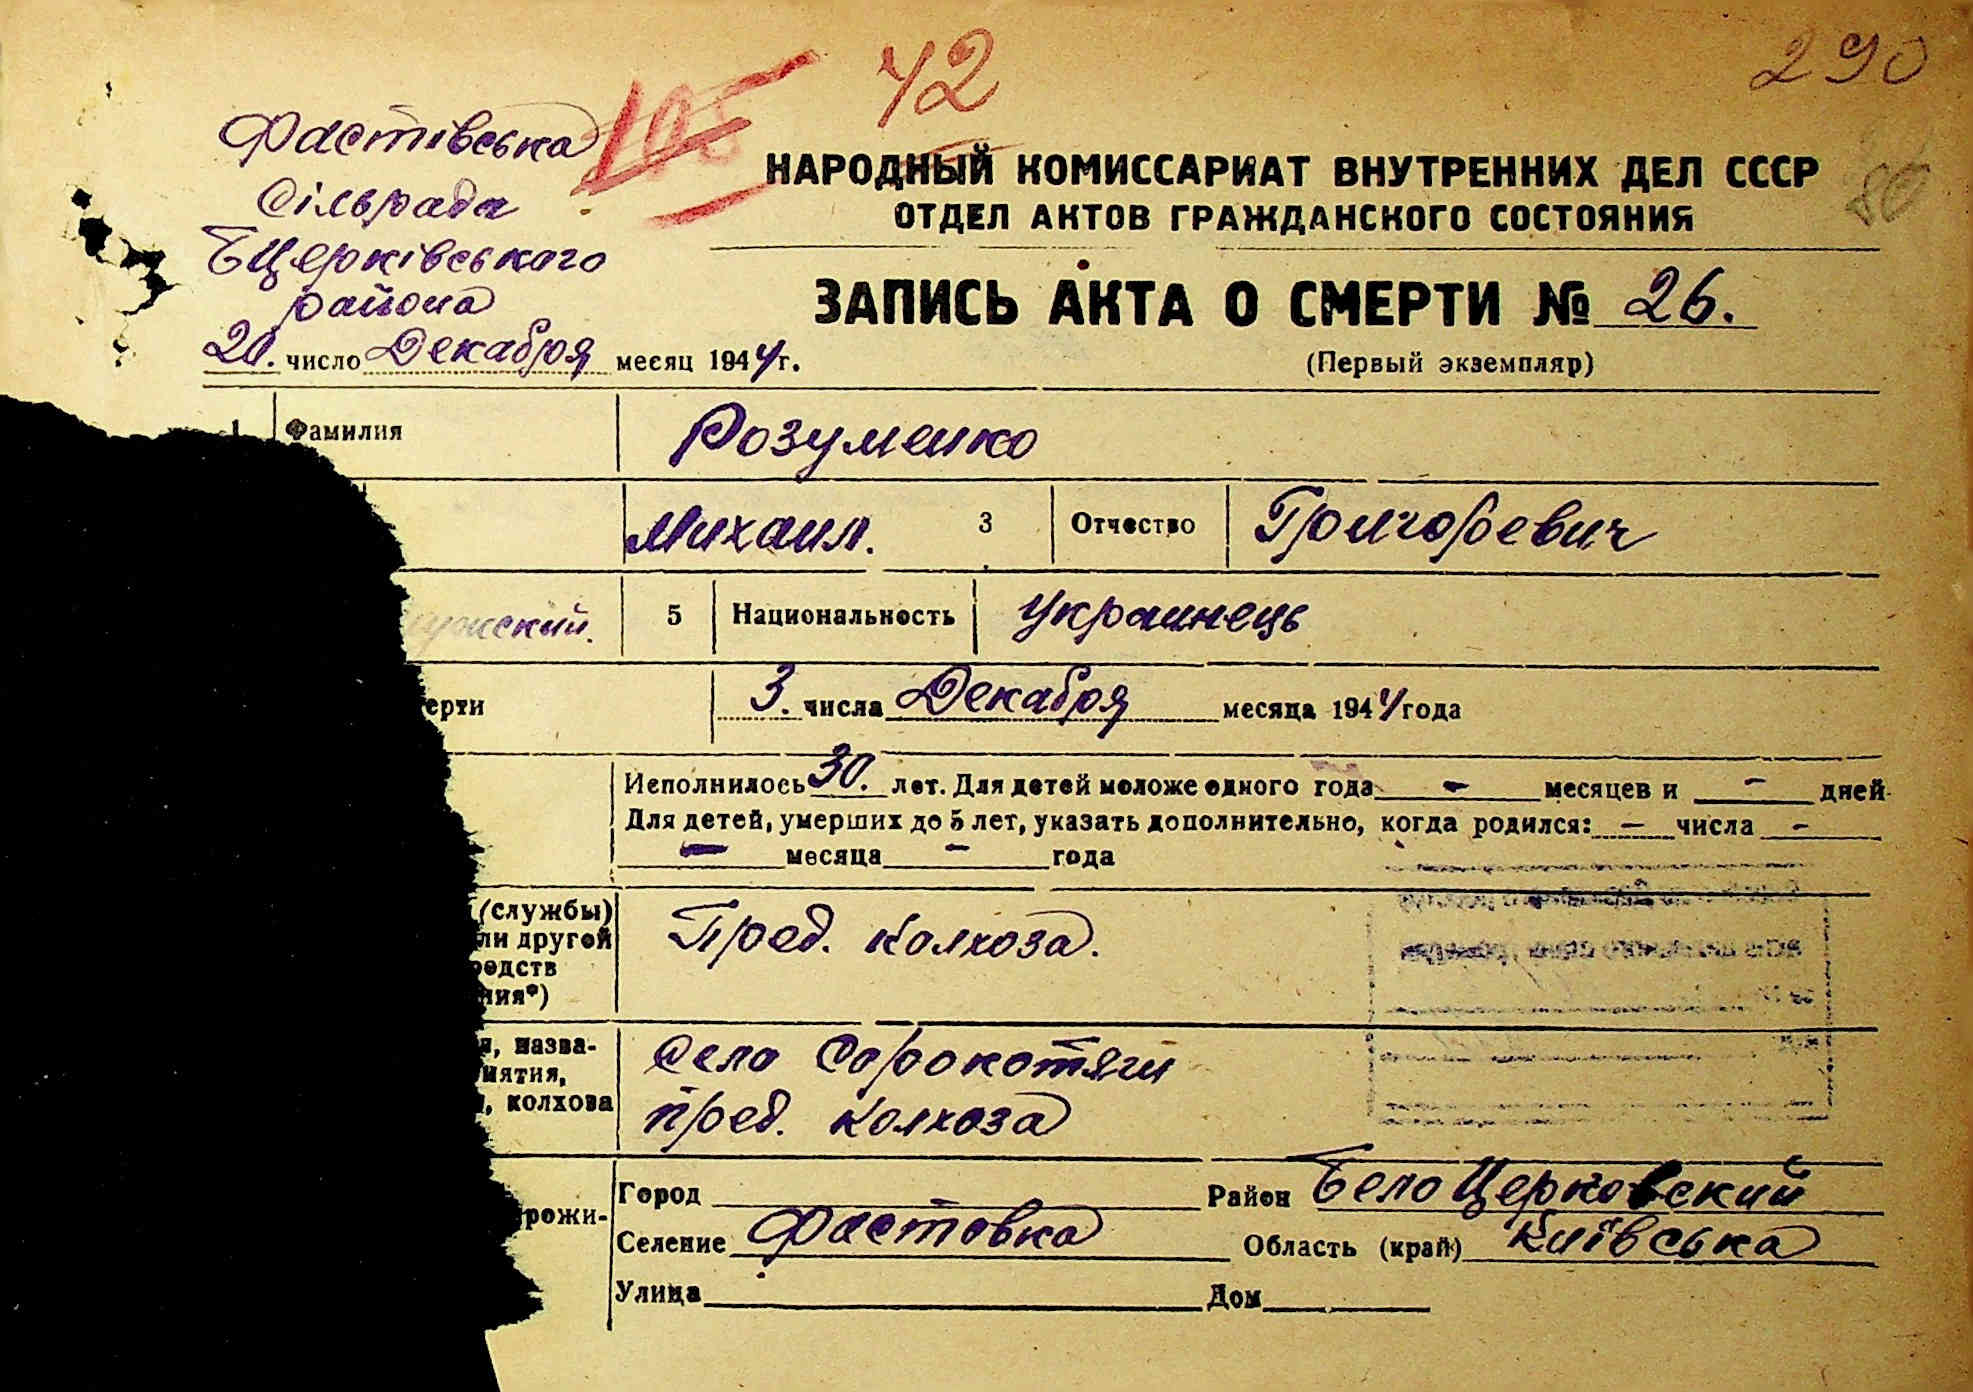 42
290
105
80
Фастівська
Сільрада
БЦерківського
района
НАРОДНЫЙ КОМИССАРИАТ ВНУТРЕННИХ ДЕЛ СССР
ОТДЕЛ АКТОВ ГРАЖДАНСКОГО СОСТОЯНИЯ
ЗАПИСЬ АКТА О СМЕРТИ № 26.
20. число Декабря месяц 1944г.
(Первый экземпляр)
1 Фамилия Розуменко
Михаил. 3 Отчество Григоревич
ужский. 5 Национальность Украинець
ерти 3. числа Декабря месяца 1944 года
Исполнилось 30. лет. Для детей моложе одного года - месяцев и - дней
Для детей, умерших до 5 лет, указать дополнительно, когда родился: - числа -
- месяца - года
(службы)
ли другой
редств
ния*)
Пред. Колхоза.
, назва-
иятия,
, колхоза
Село Сорокотяги
пред. Колхоза
рожи-
Город Район БелоЦерковский
Селение Фастовка Область (край) Київська
Улица Дом